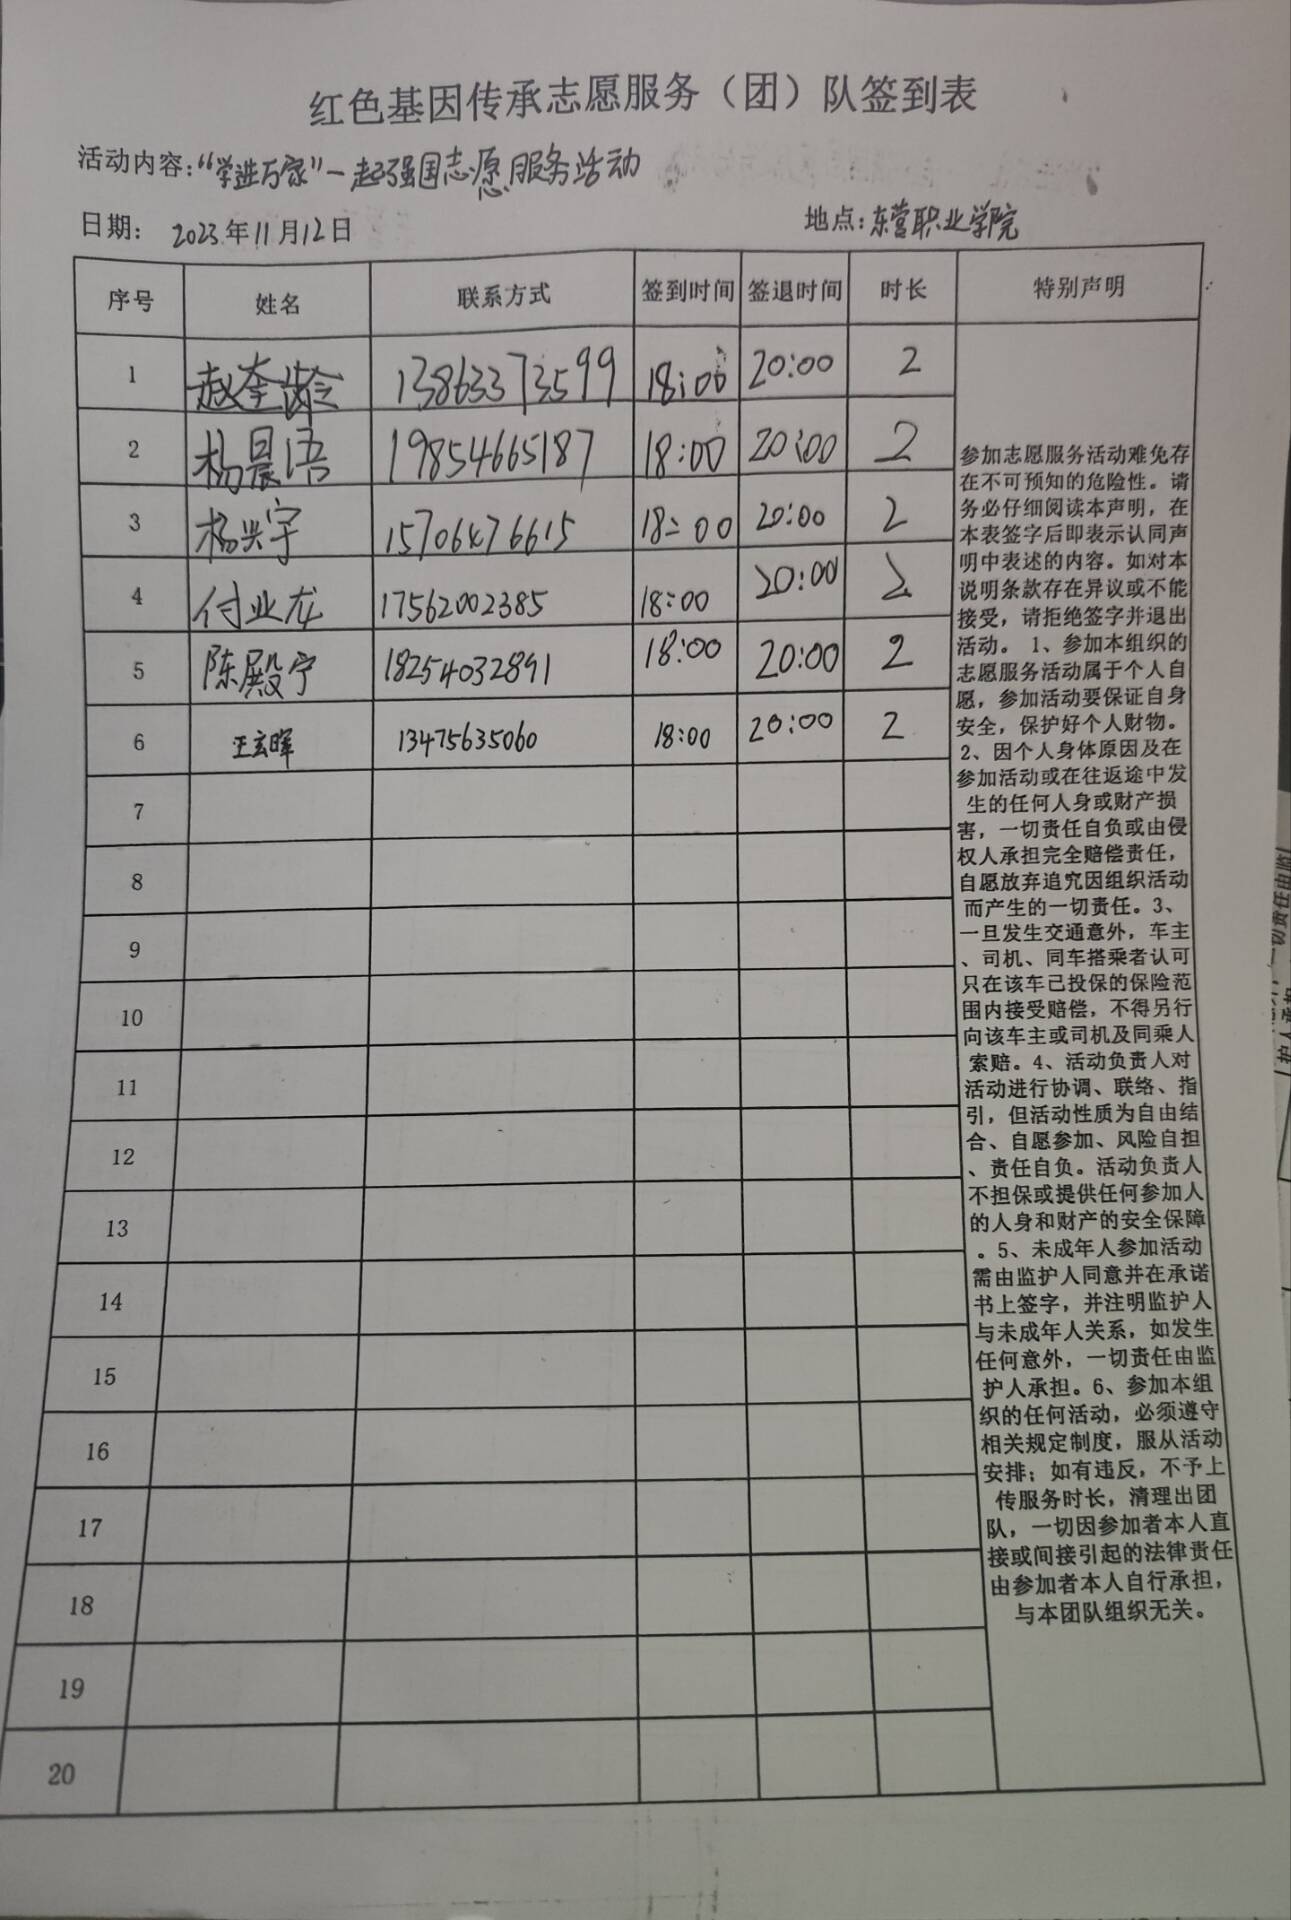 红色基因传承志愿服务（团）队签到表
活动内容：“学进万家”一起强国志愿服务活动
日期： 2023年11月12日 地点：东营职业学院
序号 姓名 联系方式 签到时间 签退时间 时长 特别声明
1 赵奎龄 13863373599 18:00 20:00 2
2 杨晨语 19854665187 18:00 20:00 2
3 杨兴宇 15706476615 18:00 20:00 2
4 付业龙 17562002385 18:00 20:00 2
5 陈殿宁 18254032891 18:00 20:00 2
6 王玄晖 13475635060 18:00 20:00 2
7
8
9
10
11
12
13
14
15
16
17
18
19
20
参加志愿服务活动难免存
在不可预知的危险性。请
务必仔细阅读本声明，在
本表签字后即表示认同声
明中表述的内容。如对本
说明条款存在异议或不能
接受，请拒绝签字并退出
活动。1、参加本组织的
志愿服务活动属于个人自
愿，参加活动要保证自身
安全，保护好个人财物。
2、因个人身体原因及在
参加活动或在往返途中发
生的任何人身或财产损
害，一切责任自负或由侵
权人承担完全赔偿责任，
自愿放弃追究因组织活动
而产生的一切责任。3、
一旦发生交通意外，车主
、司机、同车搭乘者认可
只在该车已投保的保险范
围内接受赔偿，不得另行
向该车主或司机及同乘人
索赔。4、活动负责人对
活动进行协调、联络、指
引，但活动性质为自由结
合、自愿参加、风险自担
、责任自负。活动负责人
不担保或提供任何参加人
的人身和财产的安全保障
。5、未成年人参加活动
需由监护人同意并在承诺
书上签字，并注明监护人
与未成年人关系，如发生
任何意外，一切责任由监
护人承担。6、参加本组
织的任何活动，必须遵守
相关规定制度，服从活动
安排；如有违反，不予上
传服务时长，清理出团
队，一切因参加者本人直
接或间接引起的法律责任
由参加者本人自行承担，
与本团队组织无关。